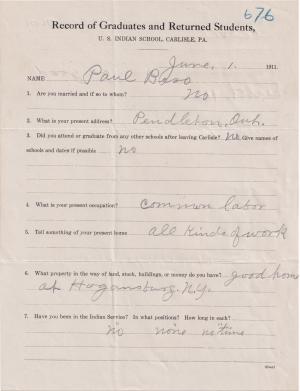 676
Record of Graduates and Returned Students,
U. S. INDIAN SCHOOL, CARLISLE, PA.
June, 1. 1911.
NAME Paul Baso
1. Are you married and if so to whom? No
2. What is your present address? Pendleton, Ont.
3. Did you attend or graduate from any other schools after leaving Carlisle? no Give names of
schools and dates if possible no
4. What is your present occupation? common labor
5. Tell something of your present home all kinds of work
6. What property in the way of land, stock, buildings, or money do you have? good home
at Hogansburg. N.Y.
7. Have you been in the Indian Service? In what positions? How long in each?
no none no time
(Over)